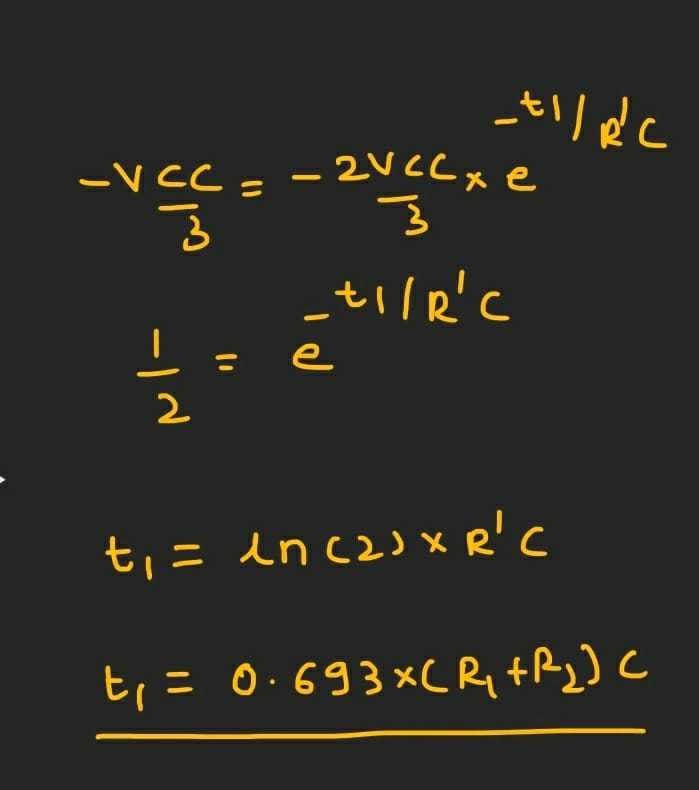 -VCC/3 = -2VCC/3 × e^-t1/R'C
1/2 = e^-t1/R'C
t₁ = ln(2) × R'C
t₁ = 0.693×(R₁+R₂)C